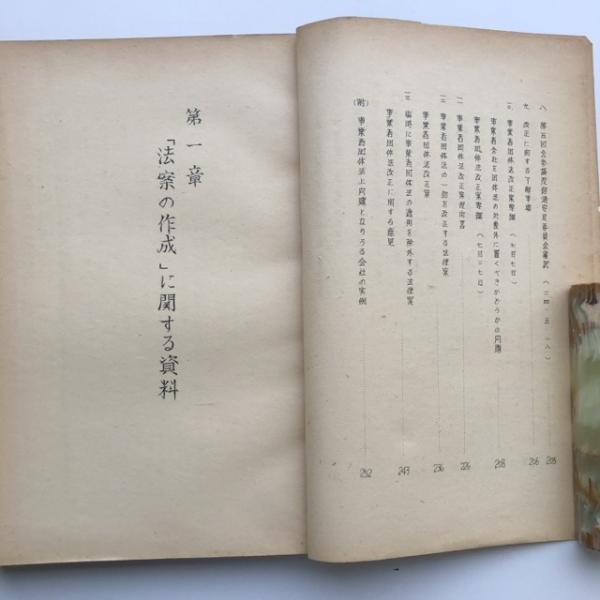 八 第五回全参議院部通安定委員会審議 (二四・五・一八) 205
九 改正に関する下部事項 206
一〇 事業者団体法改正案要綱 (七月七日)
事業者会社を団体法の対象外に置くべきかどうかの問題 208
事業者団体法改正案要綱 (七月二七日)
一一 事業者団体法改正案趣向書 226
一二 事業者団体法の一部を改正する法律案 236
事業者団体法改正案
一三 臨時に事業者団体法の適用を除外する法律案 243
事業者団体法改正に関する意見
(附) 事業者団体法上問題となりうる会社の実例 252
第一章
「法案の作成」に関する資料